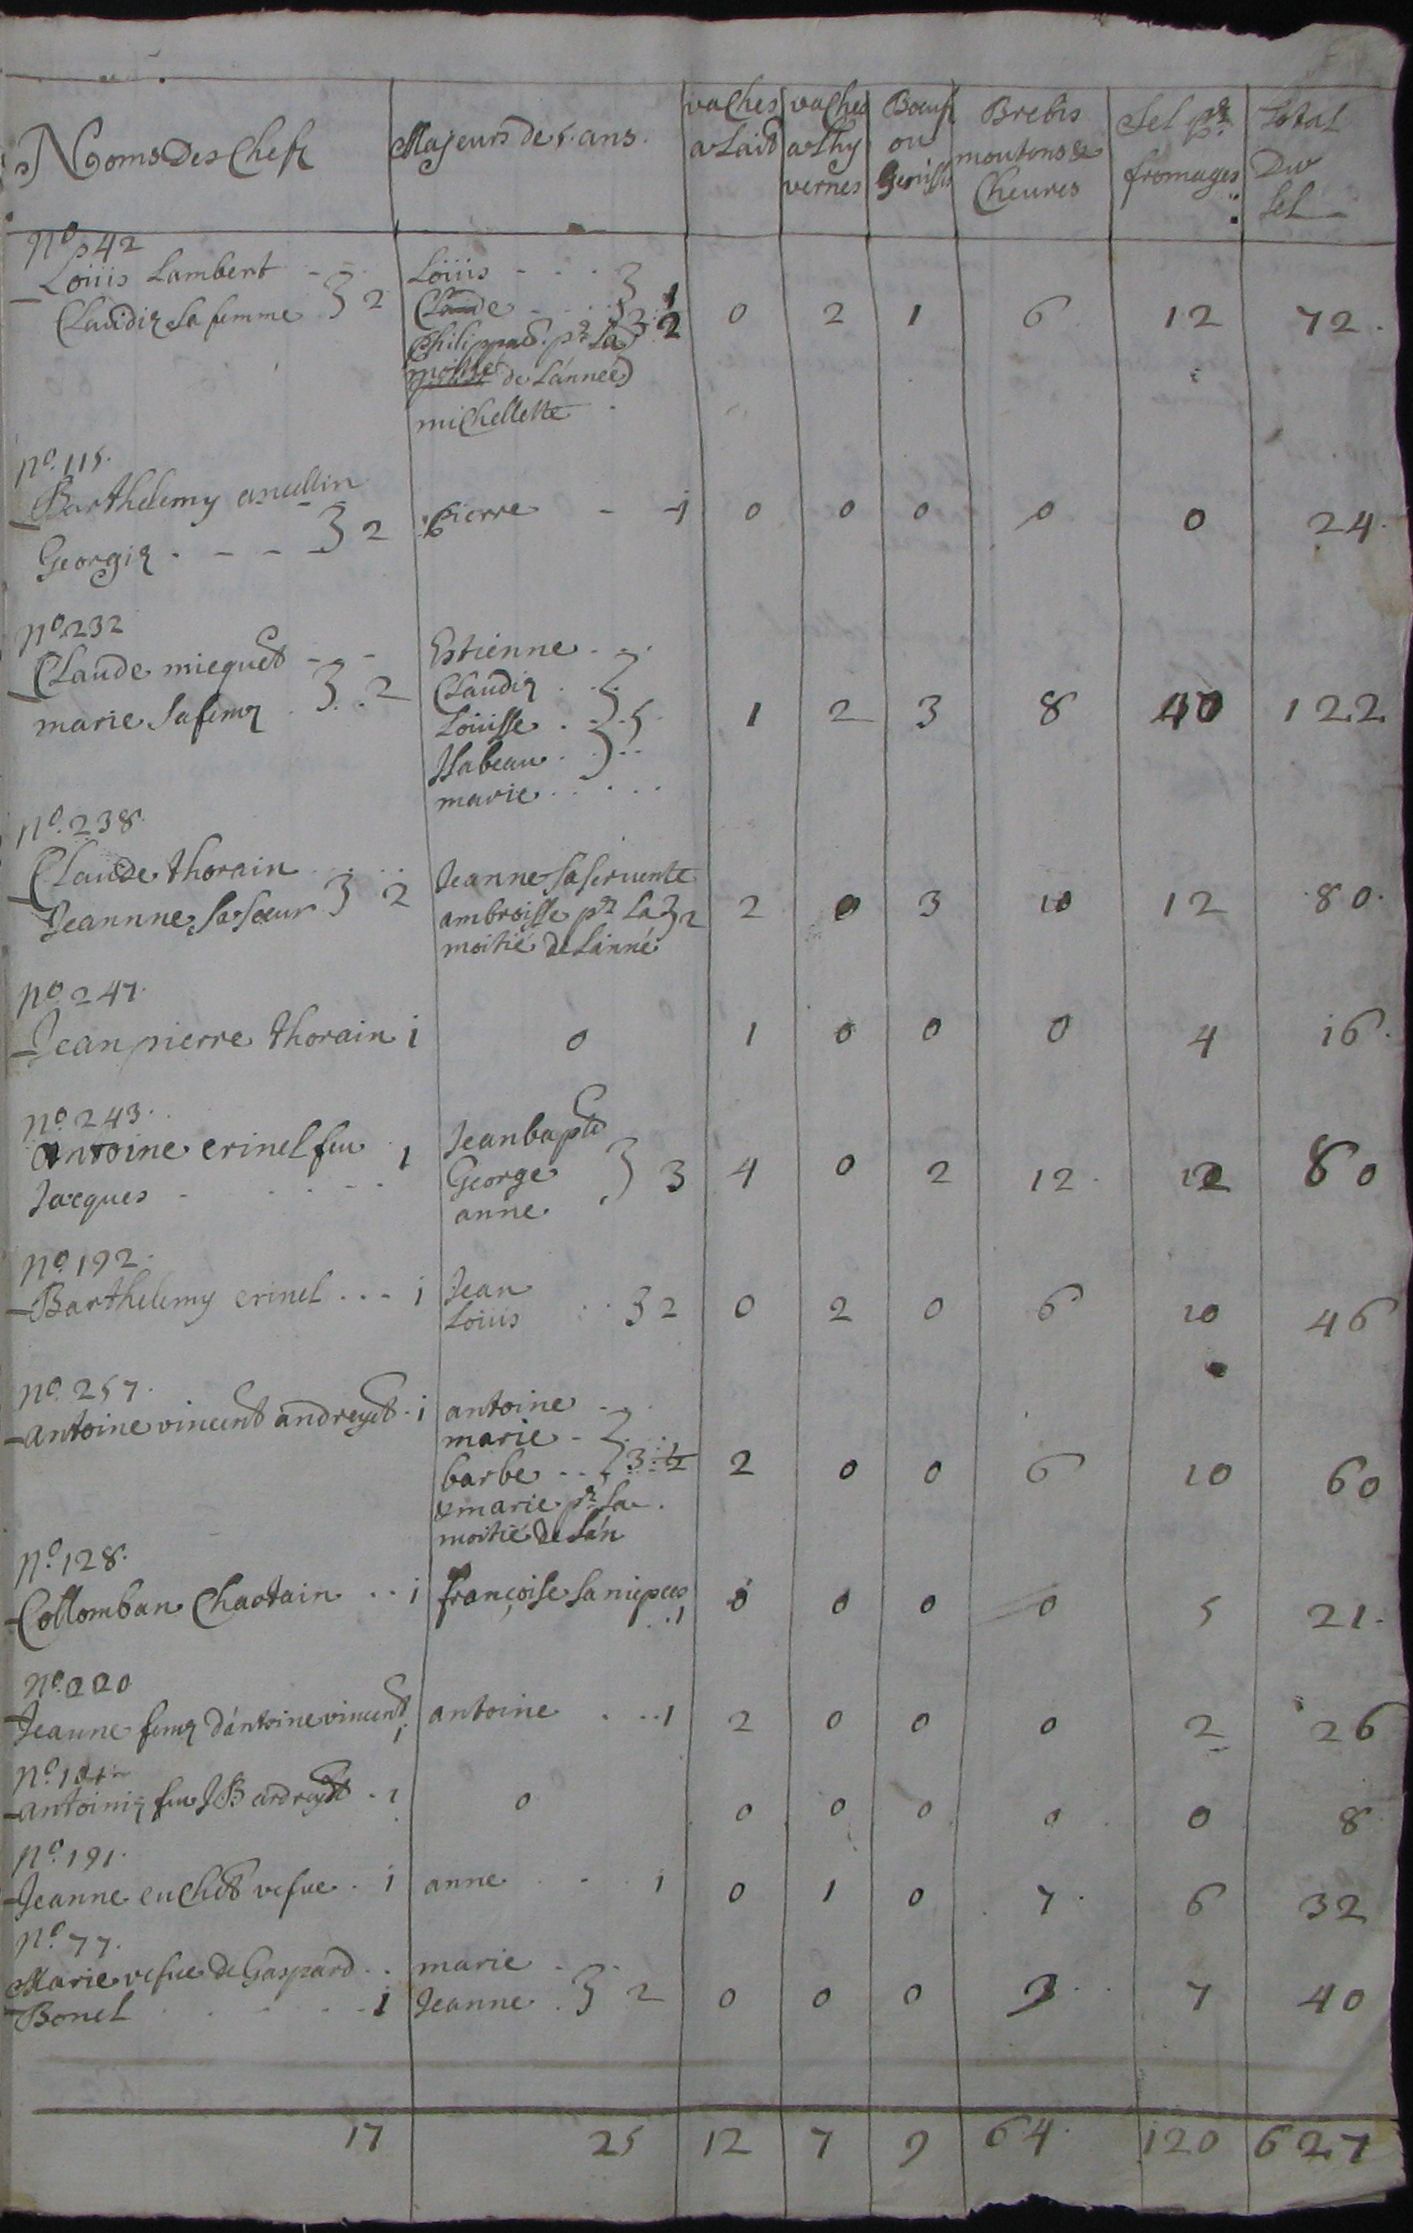 Noms Des Chefz | Majeurs de 5. ans. | vaches a Laict | vaches a Thyvernes | Boeufz ou Genisses | Brebis moutons & Cheures | Sel pr. fromages | total Du Sel
No. 42
Loüis Lambert - - | Loüis - - -
Claudiz sa femme 3 2 | Claude - - - 3 2 | 0 | 2 | 1 | 6 | 12 | 72.
Philippa pr. La
moitié de L'année
michellette
No. 115.
Barthelemy
Georgiz . - - - 3 2 | pierre - - 1 | 0 | 0 | 0 | 0 | 0 | 24.
No. 232
Claude miequet - - | Estienne - -
marie sa femz . 3 . . 2 | Claudiz . .
Loüisse . - . 5 | 1 | 2 | 3 | 8 | 40 | 122
Isabeau . . 3 . .
marie . . . . .
No. 238.
Claude thorain | Jeanne sa seruente
Jeannne sa soeur 3 2 | ambroisse pr. La 3 2 | 2 | 0 | 3 | 10 | 12 | 80.
moitié de L'anné
No. 247.
Jean pierre thorain 1 | 0 | 1 | 0 | 0 | 0 | 4 | 16.
No. 243.
Antoine crinel feu 1 | Jean bapte
Jacques - . . . - - | George 3 3 | 4 | 0 | 2 | 12. | 12 | 80
anne.
No. 192.
Barthelemy crinel . . - 1 | Jean
Loüis . . 3 2 | 0 | 2 | 0 | 6 | 10 | 46
No. 257.
antoine vincent andreyet . 1 | antoine - .
marie -
barbe . . - 3 ½ | 2 | 0 | 0 | 6 | 10 | 60
& marie pr. La .
moitié de L'an
No. 128.
Collomban Chastain . . 1 | françoise sa niepce
. . 1 | 0 | 0 | 0 | 0 | 5 | 21.
No. 220
Jeanne femz d'antoine vincent 1 | antoine . . . 1 | 2 | 0 | 0 | 0 | 2 | 26
antoiniz feu JB andreyet . 1 | 0 | 0 | 0 | 0 | 0 | 0 | 8
No. 191.
Jeanne cuchet vefue . 1 | anne . . . 1 | 0 | 1 | 0 | 7. | 6 | 32
No. 77.
Marie vefue de Gaspard . . | marie . .
Bonel . . . . . 1 | Jeanne . 3 2 | 0 | 0 | 0 | 9 . . | 7 | 40
17 | 25 | 12 | 7 | 9 | 64. | 120 | 627